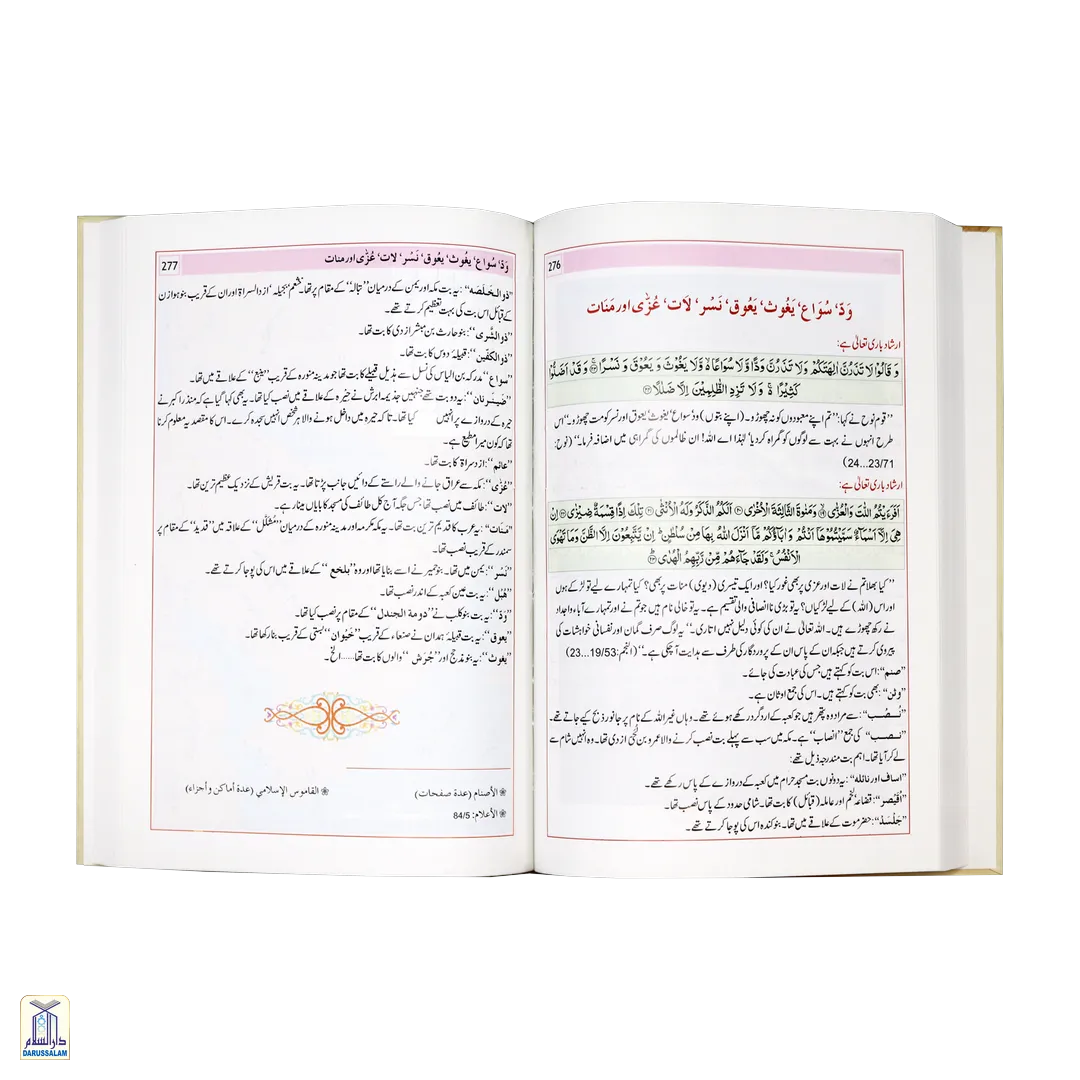 276
وَدّ، سُوَاع، يَغُوث، يَعُوق، نَسْر، لَات، عُزّٰی اور مَنَات
ارشاد باری تعالیٰ ہے:
وَ قَالُوْا لَا تَذَرُنَّ اٰلِهَتَكُمْ وَلَا تَذَرُنَّ وَدًّا وَّلَا سُوَاعًا ۙ وَّلَا يَغُوْثَ وَ يَعُوْقَ وَ نَسْرًا ۝ وَ قَدْ اَضَلُّوْا
كَثِيْرًا ۚ وَلَا تَزِدِ الظّٰلِمِيْنَ اِلَّا ضَلٰلًا ۝
’’قوم نوح نے کہا: ’’تم اپنے معبودوں کو نہ چھوڑو۔ (اپنے بتوں) ودّ، سواع، یغوث، یعوق اور نسر کو مت چھوڑو۔‘‘ اس
طرح انہوں نے بہت سے لوگوں کو گمراہ کر دیا‘ لہٰذا اے اللہ! ان ظالموں کی گمراہی میں اضافہ فرما۔‘‘ (نوح:
24...23/71)
ارشاد باری تعالیٰ ہے:
اَفَرَءَيْتُمُ اللّٰتَ وَالْعُزّٰى ۝ وَمَنٰوةَ الثَّالِثَةَ الْاُخْرٰى ۝ اَلَكُمُ الذَّكَرُ وَلَهُ الْاُنْثٰى ۝ تِلْكَ اِذًا قِسْمَةٌ ضِيْزٰى ۝ اِنْ
هِىَ اِلَّآ اَسْمَآءٌ سَمَّيْتُمُوْهَآ اَنْتُمْ وَاٰبَآؤُكُمْ مَّآ اَنْزَلَ اللّٰهُ بِهَا مِنْ سُلْطٰنٍ ؕ اِنْ يَّتَّبِعُوْنَ اِلَّا الظَّنَّ وَمَا تَهْوَى
الْاَنْفُسُ ۚ وَلَقَدْ جَآءَهُمْ مِّنْ رَّبِّهِمُ الْهُدٰى ۝
’’کیا بھلا تم نے لات اور عزی پر بھی غور کیا؟ اور ایک تیسری (دیوی) منات پر بھی؟ کیا تمہارے لیے تو لڑکے ہوں
اور اس (اللہ) کے لیے لڑکیاں؟ یہ تو بڑی ناانصافی والی تقسیم ہے۔ یہ تو خالی نام ہیں جو تم نے اور تمہارے آباء و اجداد
نے رکھ چھوڑے ہیں۔ اللہ تعالیٰ نے ان کی کوئی دلیل نہیں اتاری۔‘‘ یہ لوگ صرف گمان اور نفسانی خواہشات کی
پیروی کرتے ہیں جبکہ ان کے پاس ان کے پروردگار کی طرف سے ہدایت آچکی ہے۔‘‘ (النجم: 19/53...23)
’’صنم‘‘: اس بت کو کہتے ہیں جس کی عبادت کی جائے۔
’’وثن‘‘: بھی بت کو کہتے ہیں۔ اس کی جمع اوثان ہے۔
’’نُصُب‘‘: سے مراد وہ پتھر ہیں جو کعبہ کے اردگرد رکھے ہوئے تھے۔ وہاں غیر اللہ کے نام پر جانور ذبح کیے جاتے تھے۔
’’نصب‘‘ کی جمع ’’انصاب‘‘ ہے۔ مکہ میں سب سے پہلے بت نصب کرنے والا عمرو بن لُحَیّ ازدی تھا۔ وہ انہیں شام سے
لے کر آیا تھا۔ اہم بت مندرجہ ذیل تھے:
’’اساف اور نائلہ‘‘: یہ دونوں بت مسجد حرام میں کعبہ کے دروازے کے پاس رکھے تھے۔
’’اُقَیصر‘‘: قضاعہ، لخم اور عاملہ (قبائل) کا بت تھا۔ شامی حدود کے پاس نصب تھا۔
’’جَلْسَد‘‘: حضر موت کے علاقے میں تھا۔ بنو کندہ اس کی پوجا کرتے تھے۔
وَدّ، سُواع، يغُوث، يعُوق، نَسْر، لات، عُزّٰی اور منات 277
’’ذوالخَلَصَہ‘‘: یہ بت مکہ اور یمن کے درمیان ’’تبالہ‘‘ کے مقام پر تھا۔ خثعم، بجیلہ، ازد السراۃ اور ان کے قریب بنو ہوازن
کے قبائل اس بت کی بہت تعظیم کرتے تھے۔
’’ذوالشَّری‘‘: بنو حارث بن مبشر ازدی کا بت تھا۔
’’ذوالکفّین‘‘: قبیلہ دوس کا بت تھا۔
’’سواع‘‘ مدرکہ بن الیاس کی نسل سے ہذیل قبیلے کا بت تھا جو مدینہ منورہ کے قریب ’’ینبع‘‘ کے علاقے میں تھا۔
’’ضَیزَنان‘‘: یہ دو بت تھے جنہیں جذیمہ ابرش نے حیرہ کے علاقے میں نصب کیا تھا۔ یہ بھی کہا گیا ہے کہ منذر اکبر نے
حیرہ کے دروازے پر انہیں کیا تھا۔ تاکہ حیرہ میں داخل ہونے والا ہر شخص انہیں سجدہ کرے۔ اس کا مقصد یہ معلوم کرنا
تھا کہ کون میرا مطیع ہے۔
’’عائم‘‘: ازد سراۃ کا بت تھا۔
’’عُزّٰی‘‘: مکہ سے عراق جانے والے راستے کے دائیں جانب پڑتا تھا۔ یہ بت قریش کے نزدیک عظیم ترین تھا۔
’’لات‘‘: طائف میں نصب تھا جس جگہ آج کل طائف کی مسجد کا بایاں مینار ہے۔
’’مَنات‘‘: یہ عرب کا قدیم ترین بت تھا۔ یہ مکہ مکرمہ اور مدینہ منورہ کے درمیان ’’مُشَلّل‘‘ کے علاقہ میں ’’قدید‘‘ کے مقام پر
سمندر کے قریب نصب تھا۔
’’نَسْر‘‘: یمن میں تھا۔ بنو حمیر نے اسے بنایا تھا اور وہ ’’بلخع‘‘ کے علاقے میں اس کی پوجا کرتے تھے۔
’’ھُبَل‘‘: یہ بت عین کعبہ کے اندر نصب تھا۔
’’وَدّ‘‘: یہ بت بنو کلب نے ’’دومۃ الجندل‘‘ کے مقام پر نصب کیا تھا۔
’’یعوق‘‘: یہ بت قبیلہ ہمدان نے صنعاء کے قریب ’’خَیوان‘‘ بستی کے قریب بنا رکھا تھا۔
’’یغوث‘‘: یہ بنو مذحج اور ’’جُرَش‘‘ والوں کا بت تھا...... الخ۔
❀ الأصنام (عدة صفحات) ❀ القاموس الإسلامي (عدة أماكن وأجزاء)
❀ الأعلام: 84/5
دارالسلام
DARUSSALAM